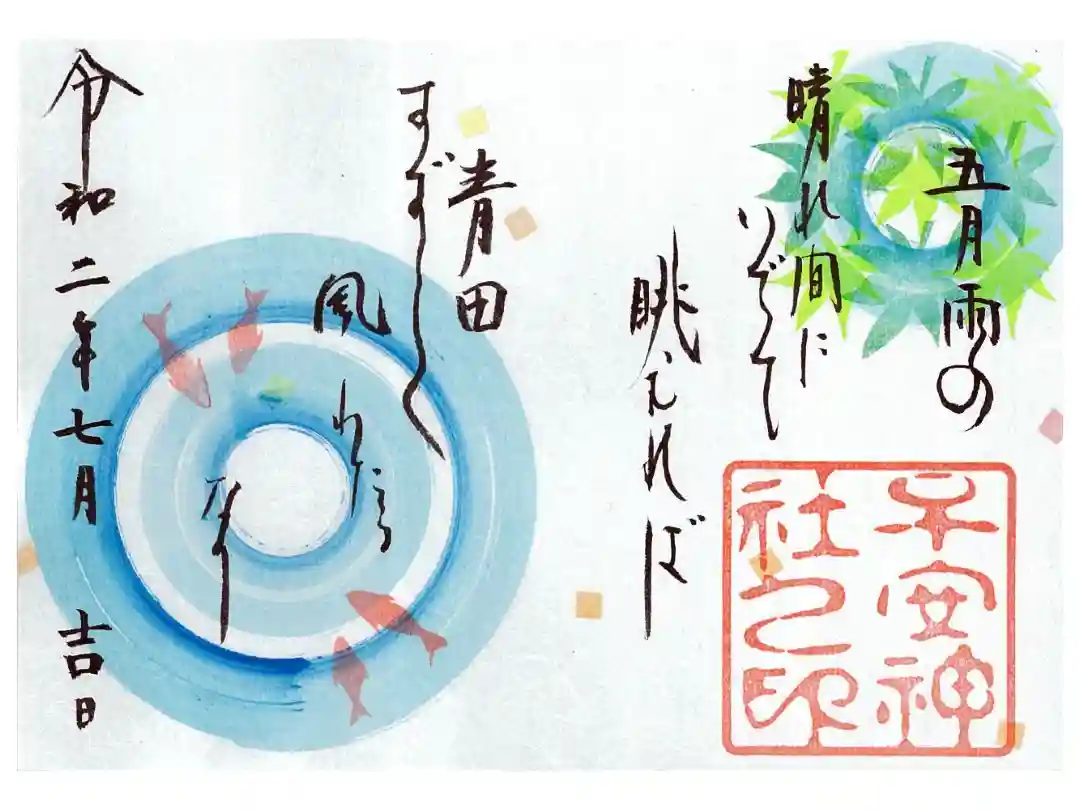 五月雨の
晴れ間に
いでて
眺むれば
青田
すずしく
風
わたる
なり
令和二年七月 吉日
子安神
社之印